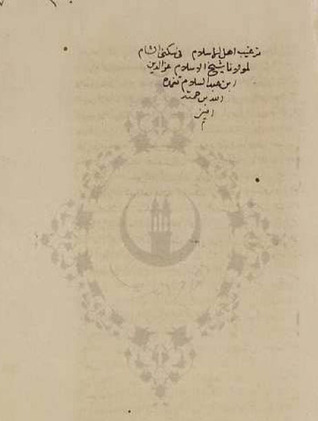 ترغيب اهل الاسلام في سكنى الشام
لمولانا شيخ الاسلام عز الدين
ابن عبد السلام تغمده
الله برحمته
امين